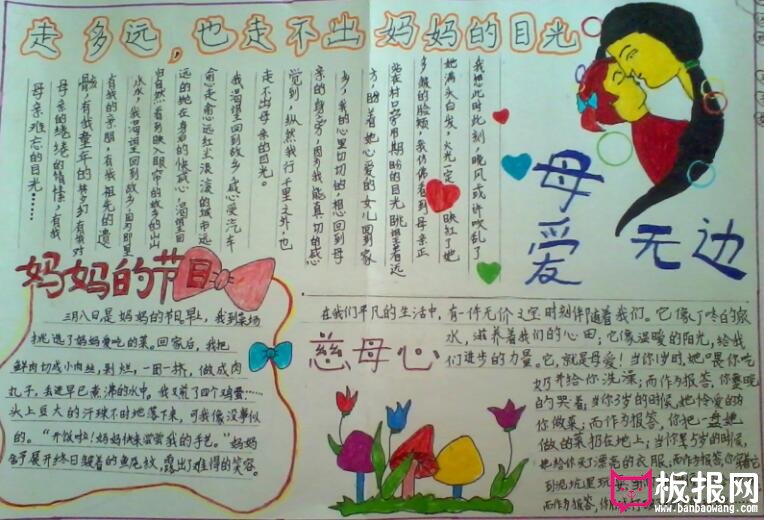 走多远，也走不出妈妈的目光
我想此时此刻，晚风或许吹乱了
她满头白发，火光一定映红了她
多皱的脸颊，我仿佛看到母亲正
站在村口旁用期盼的目光眺望着远
方，盼着她心爱的女儿回到家
乡，我的心里切切的想回到母
亲的身旁，因为我能真切的感
觉到，纵然我行千里之外，也
走不出母亲的目光。
我渴望回到故乡，感受汽车
愈走离愈远红尘滚滚的城市远
远的抛在身后的惬意，渴望
归自然看到映入眼帘的故乡的山山
水水，我渴望回到故乡，因为那里
有我的亲朋，有我祖先的遗
骨，有我童年的梦幻有我对
母亲的绻绻的情怀，有我
母亲难忘的目光……
母爱无边
妈妈的节日
三月八日是妈妈的节日。早上，我到菜场
挑选了妈妈爱吃的菜。回家后，我把
鲜肉切成小肉丝，剁烂，一团一挤，做成肉
丸子，丢进早已煮沸的水中。我又煎了四个鸡蛋……
头上豆大的汗珠不时地落下来，可我像没事似
的。“开饭啦！妈妈快来尝尝我的手艺。”妈妈
舒展开终日皱着的鱼尾纹，露出了难得的笑容。
慈母心
在我们平凡的生活中，有一件无价之宝时刻伴随着我们。它像丁咚的泉
水，滋养着我们的心田；它像温暖的阳光，给我
们进步的力量。它，就是母爱！当你1岁时，她喂你吃
奶并给你洗澡；而作为报答，你整晚
的哭着；当你3岁的时候，她怜爱的为
你做菜；而作为报答，你把一盘她
做的菜扔在地上；当你是5岁的时候，
她给你买了漂亮的衣服，而作为报答，你穿着它
到泥坑里玩耍；
而作为报答，你
板报网
www.banbaowang.com